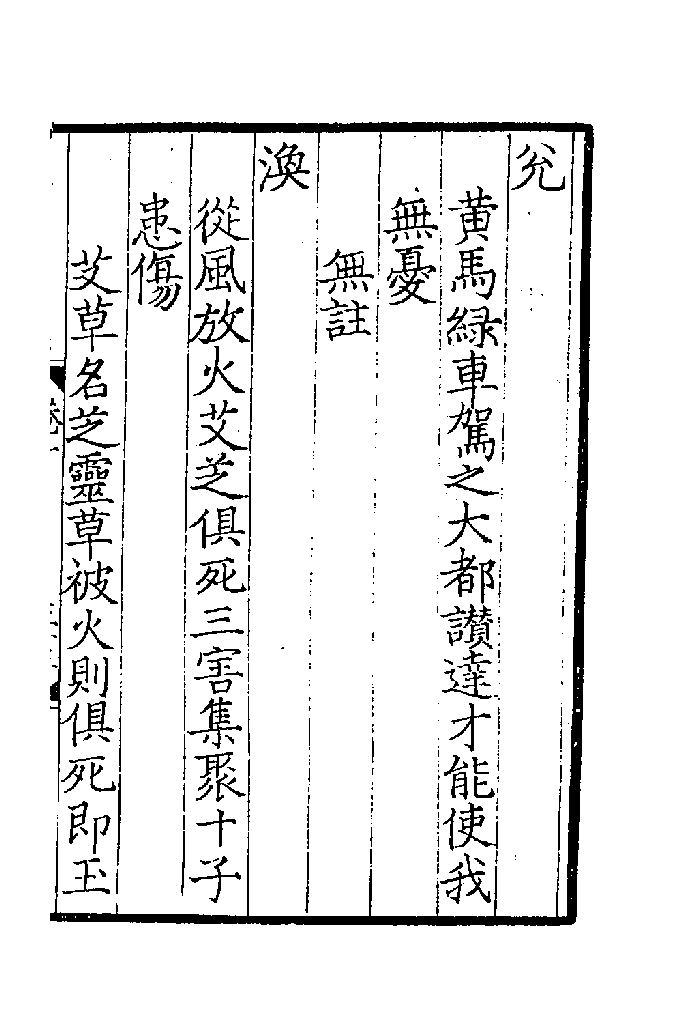 兊
黄馬緑車駕之大都讃達才能使我
無憂
無註
渙
從風放火艾芝俱死三害集聚十子
患傷
艾草名芝靈草被火則俱死即玉